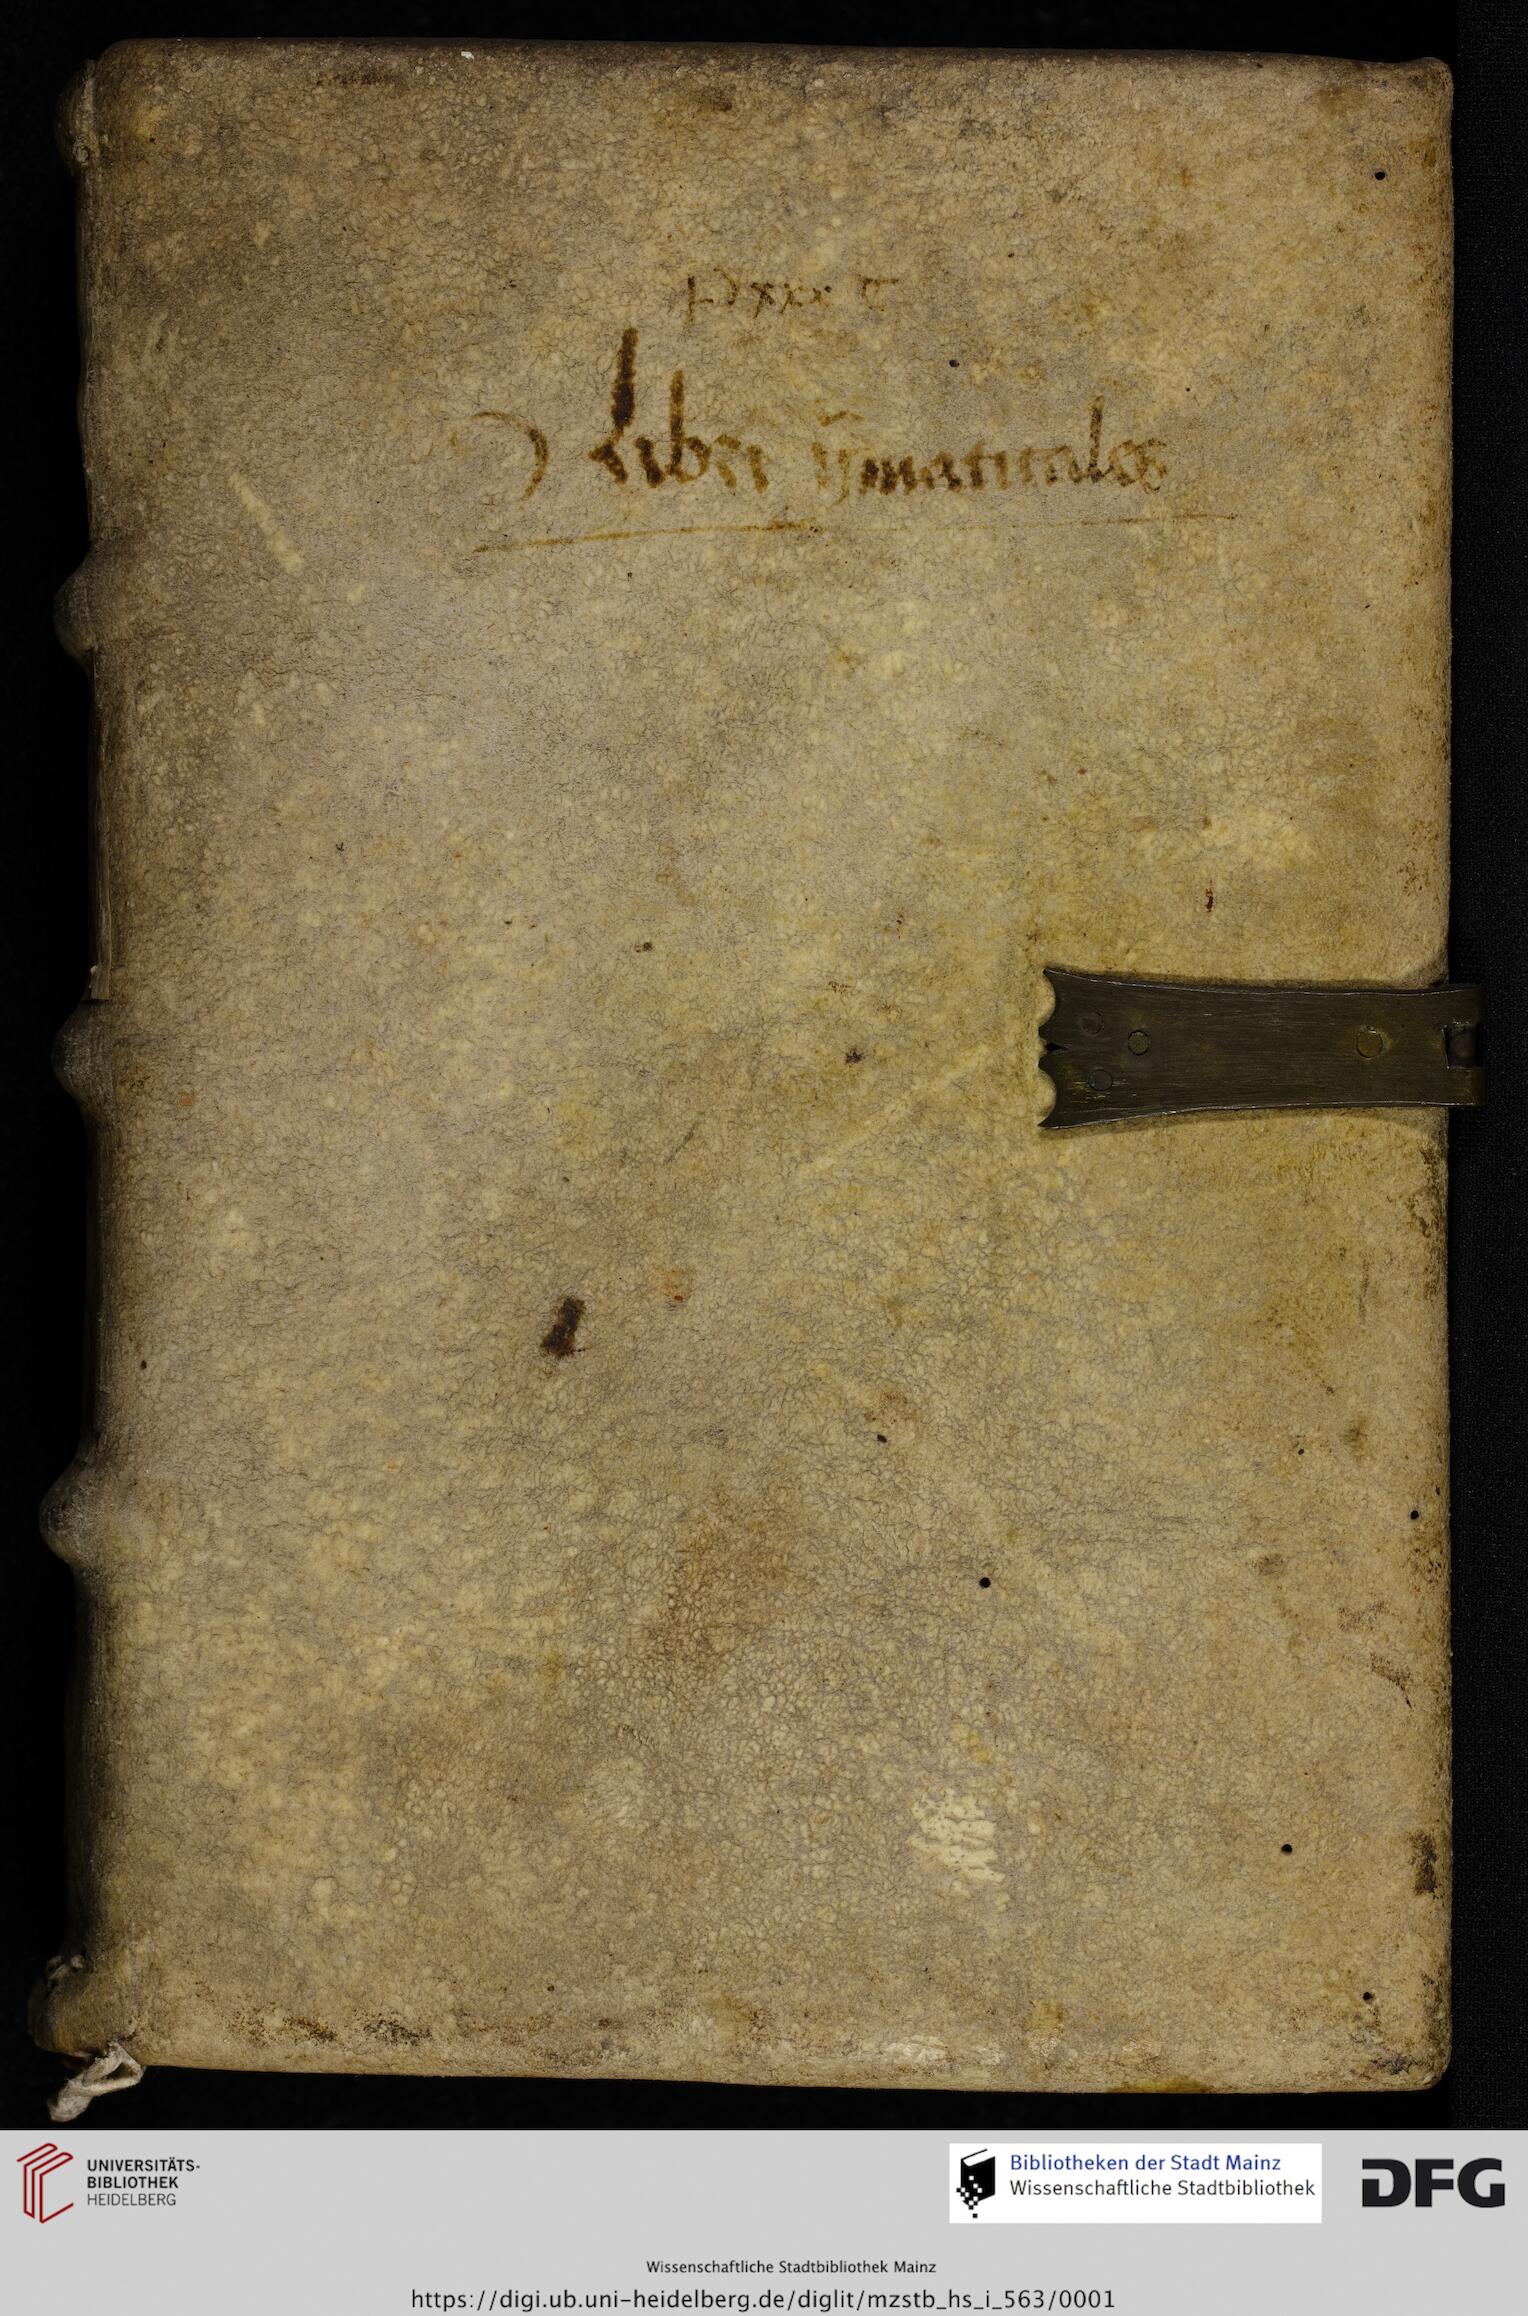 xxx
Libri
UNIVERSITÄTS-
BIBLIOTHEK
HEIDELBERG
Bibliotheken der Stadt Mainz
Wissenschaftliche Stadtbibliothek
DFG
Wissenschaftliche Stadtbibliothek Mainz
https://digi.ub.uni-heidelberg.de/diglit/mzstb_hs_i_563/0001